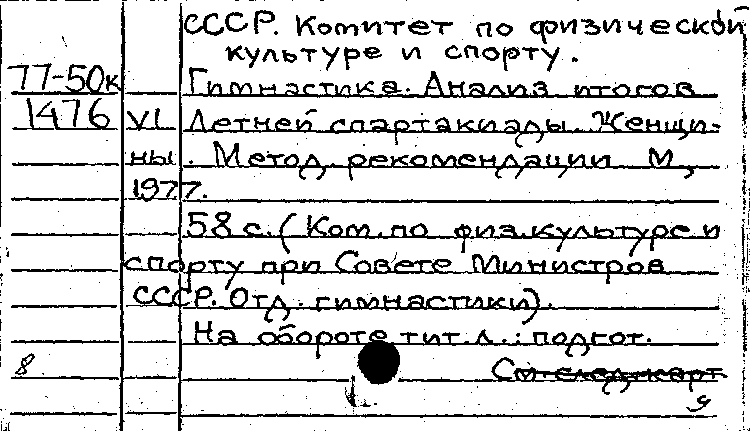 СССР. Комитет по физической
культуре и спорту.
77-50к Гимнастика. Анализ итогов
1476 VI Летней спартакиады. Женщи-
ны. Метод. рекомендации М.,
1977.
58 с. (Ком. по физ.культуре и
спорту при Совете Министров
СССР. Отд. гимнастики).
На обороте тит. л.: подгот.
8 См. след. карт